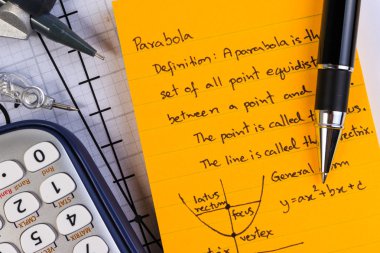 Parabola
Definition: A parabola is th
set of all point equidist
between a point and
The point is called us.
The line is called th ectrix.
General rm
y=ax²+bx+c
latus
rectum
focus
vertex
0
1
2
4
5
7
8
Ran#
MATRIX
CMPLX
VECTOR